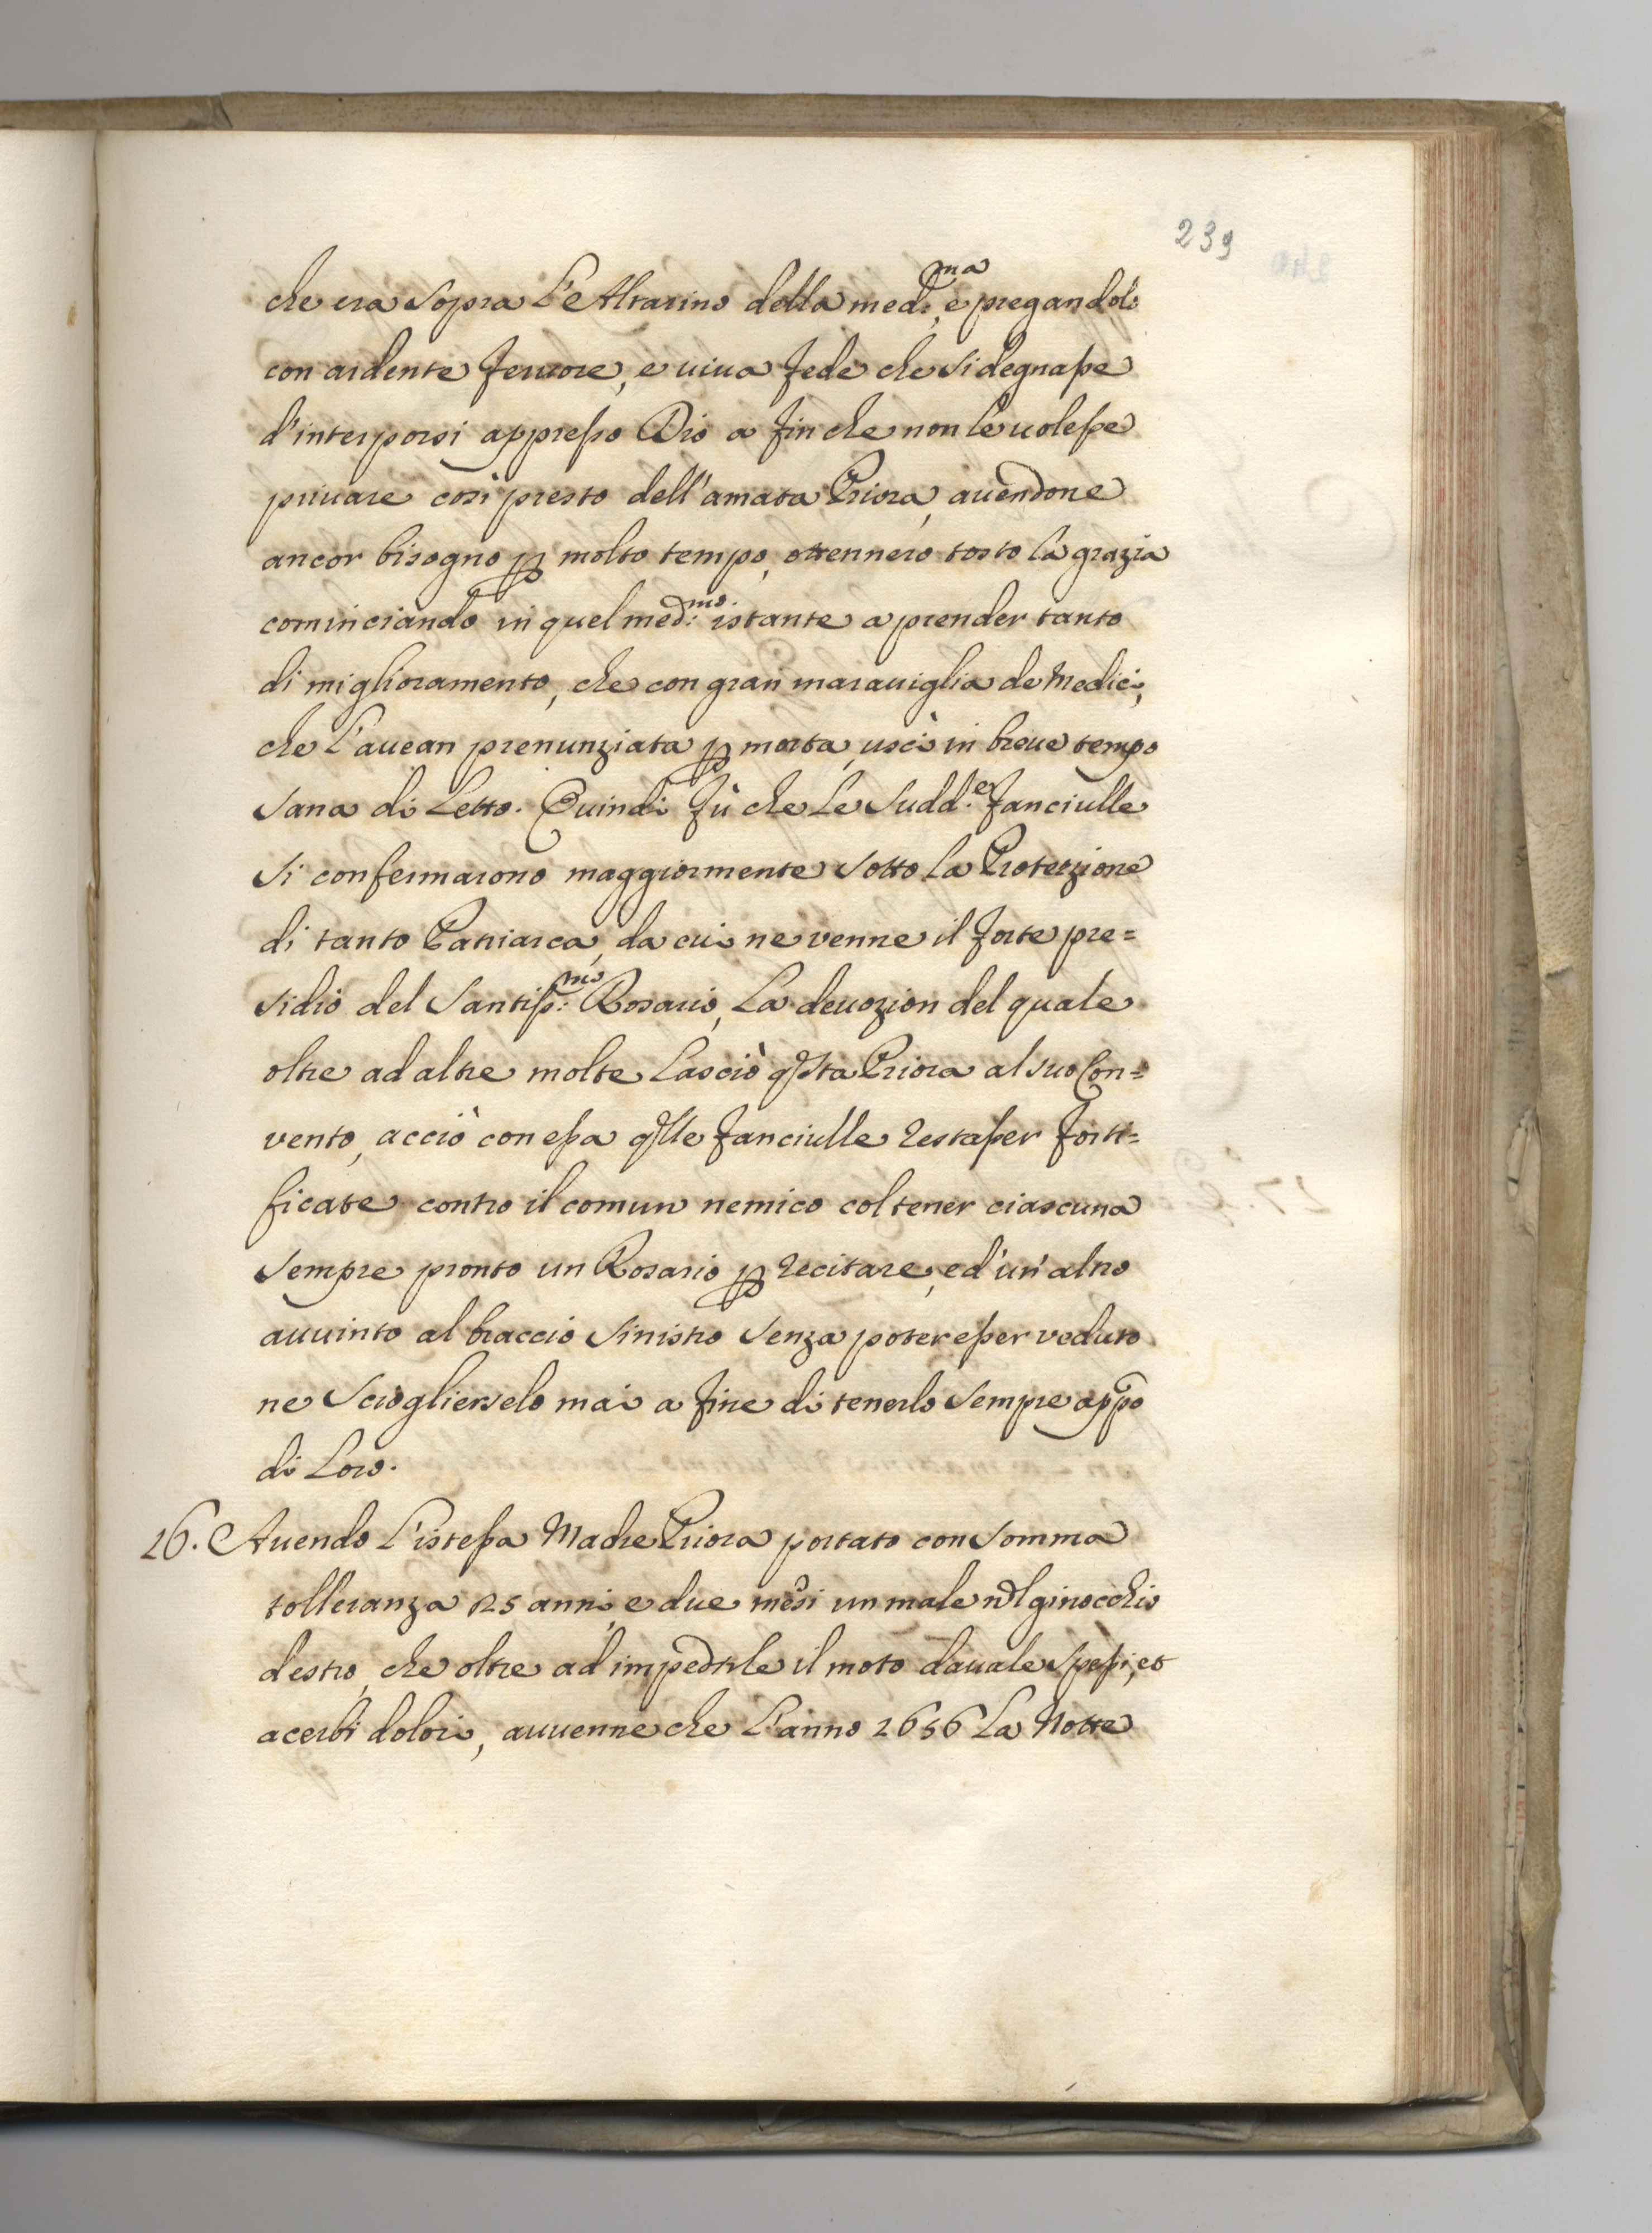 239
che era sopra l'Altarino della med:ma, e pregandolo
con ardente feruore, e uiua fede che si degnasse
d'interporsi appresso Dio a fin che non le uolesse
priuare così presto dell'amata Priora, auendone
ancor bisogno p molto tempo, ottennero tosto la grazia
cominciando in quel med:mo istante a prender tanto
di miglioramento, che con gran marauiglia de Medici,
che l'auean prenunziata p morta, uscì in breue tempo
sana di Letto. Quindi fù che le sudd.e fanciulle
si confermarono maggiormente sotto la Protezzione
di tanto Patriarca, da cui ne venne il forte pre=
sidio del Santiss:mo Rosario, la deuozion del quale
oltre ad altre molte lasciò qsta Priora al suo Con=
vento, acciò con essa qlle fanciulle restasser forti=
ficate contro il comun nemico col tener ciascuna
sempre pronto un Rosario p recitare, ed un'altro
auuinto al braccio sinistro senza poter esser veduto
ne scioglierselo mai a fine di tenerlo sempre appo
di Loro.
16. Auendo l'istessa Madre Priora portato con somma
tolleranza 25 anni, e due mesi un male nel ginocchio
destro, che oltre ad impedirle il moto dauale spessi, et
acerbi dolori, auuenne che l'anno 1656 la Notte